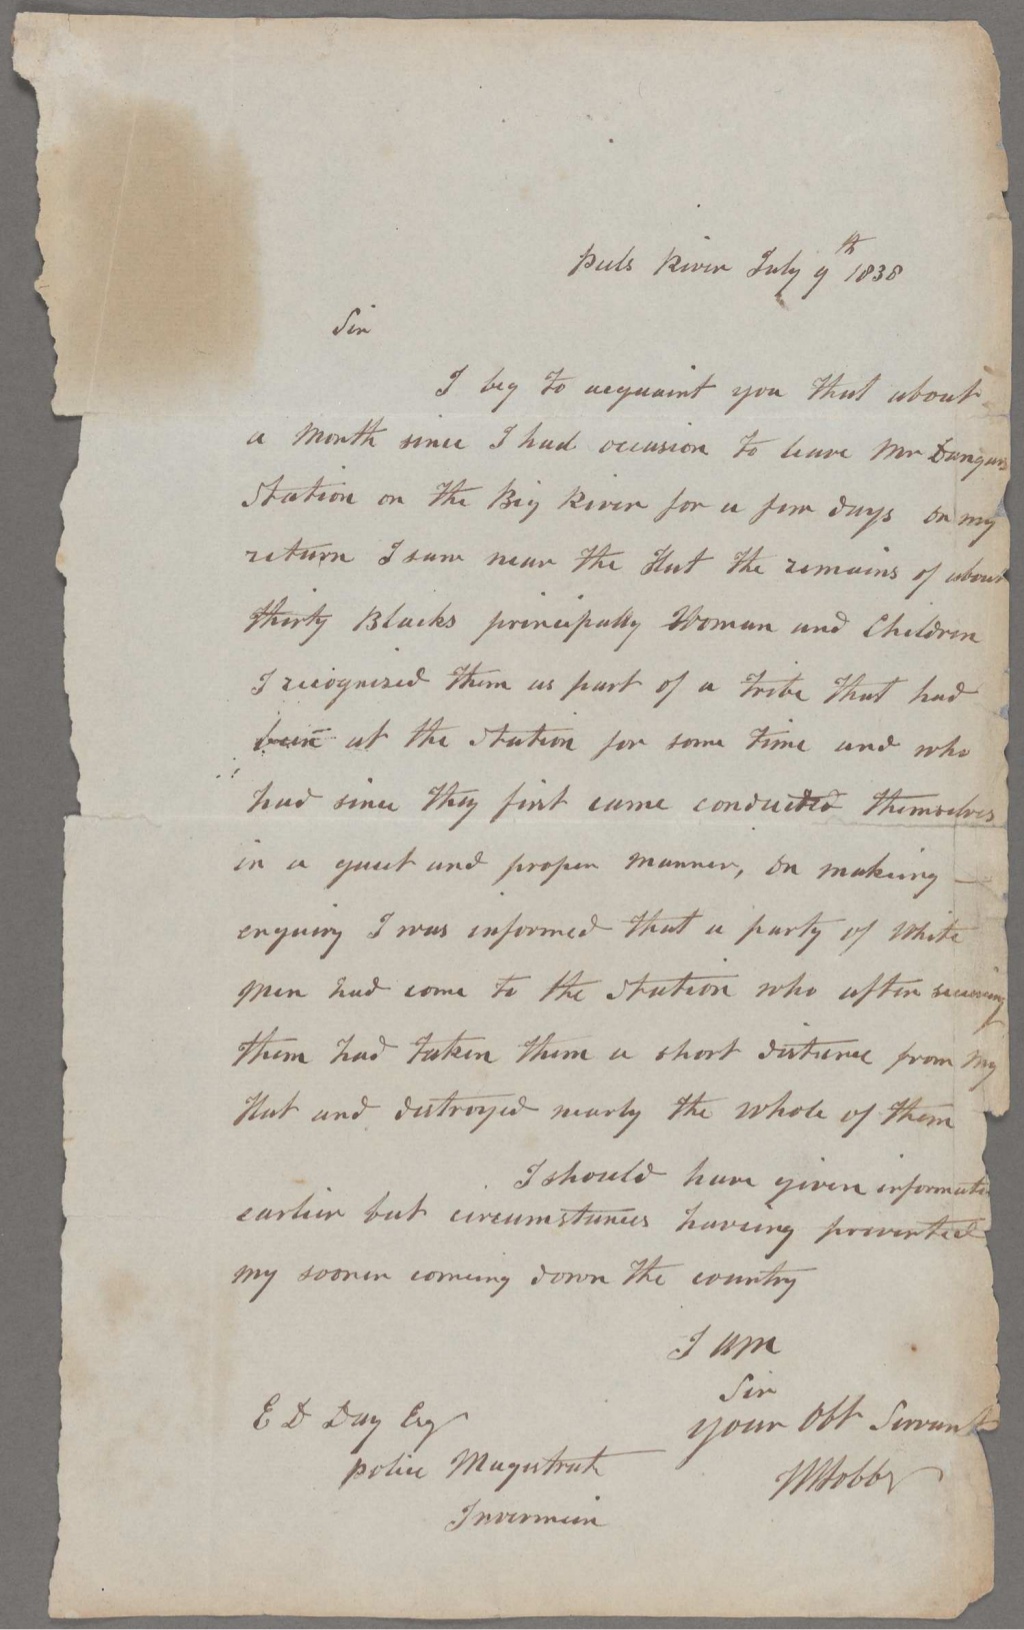 Peels River July 9th 1838
Sir
I beg to acquaint you that about
a Month since I had occasion to leave Mr Dangars
Station on the Big River for a few days on my
return I saw near the Hut the remains of about
thirty Blacks principally Woman and Children
I recognised them as part of a tribe that had
been at the Station for some time and who
had since they first came conducted themselves
in a quiet and proper manner, on making
enquiry I was informed that a party of White
Men had come to the Station who after securing
them had taken them a short distance from My
Hut and destroyed nearly the whole of them
I should have given information
earlier but circumstances having prevented
my sooner coming down the country
I am
Sir
your Obt Servant
W Hobbs
E D Day Esq
Police Magistrate
Invermein